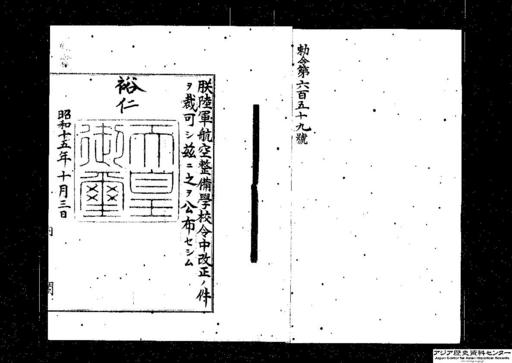 勅令第六百五十九號
朕陸軍航空整備學校令中改正ノ件
ヲ裁可シ茲ニ之ヲ公布セシム
裕仁
天皇
御璽
昭和十五年十月三日
内閣
アジア歴史資料センター
Japan Center for Asian Historical Records